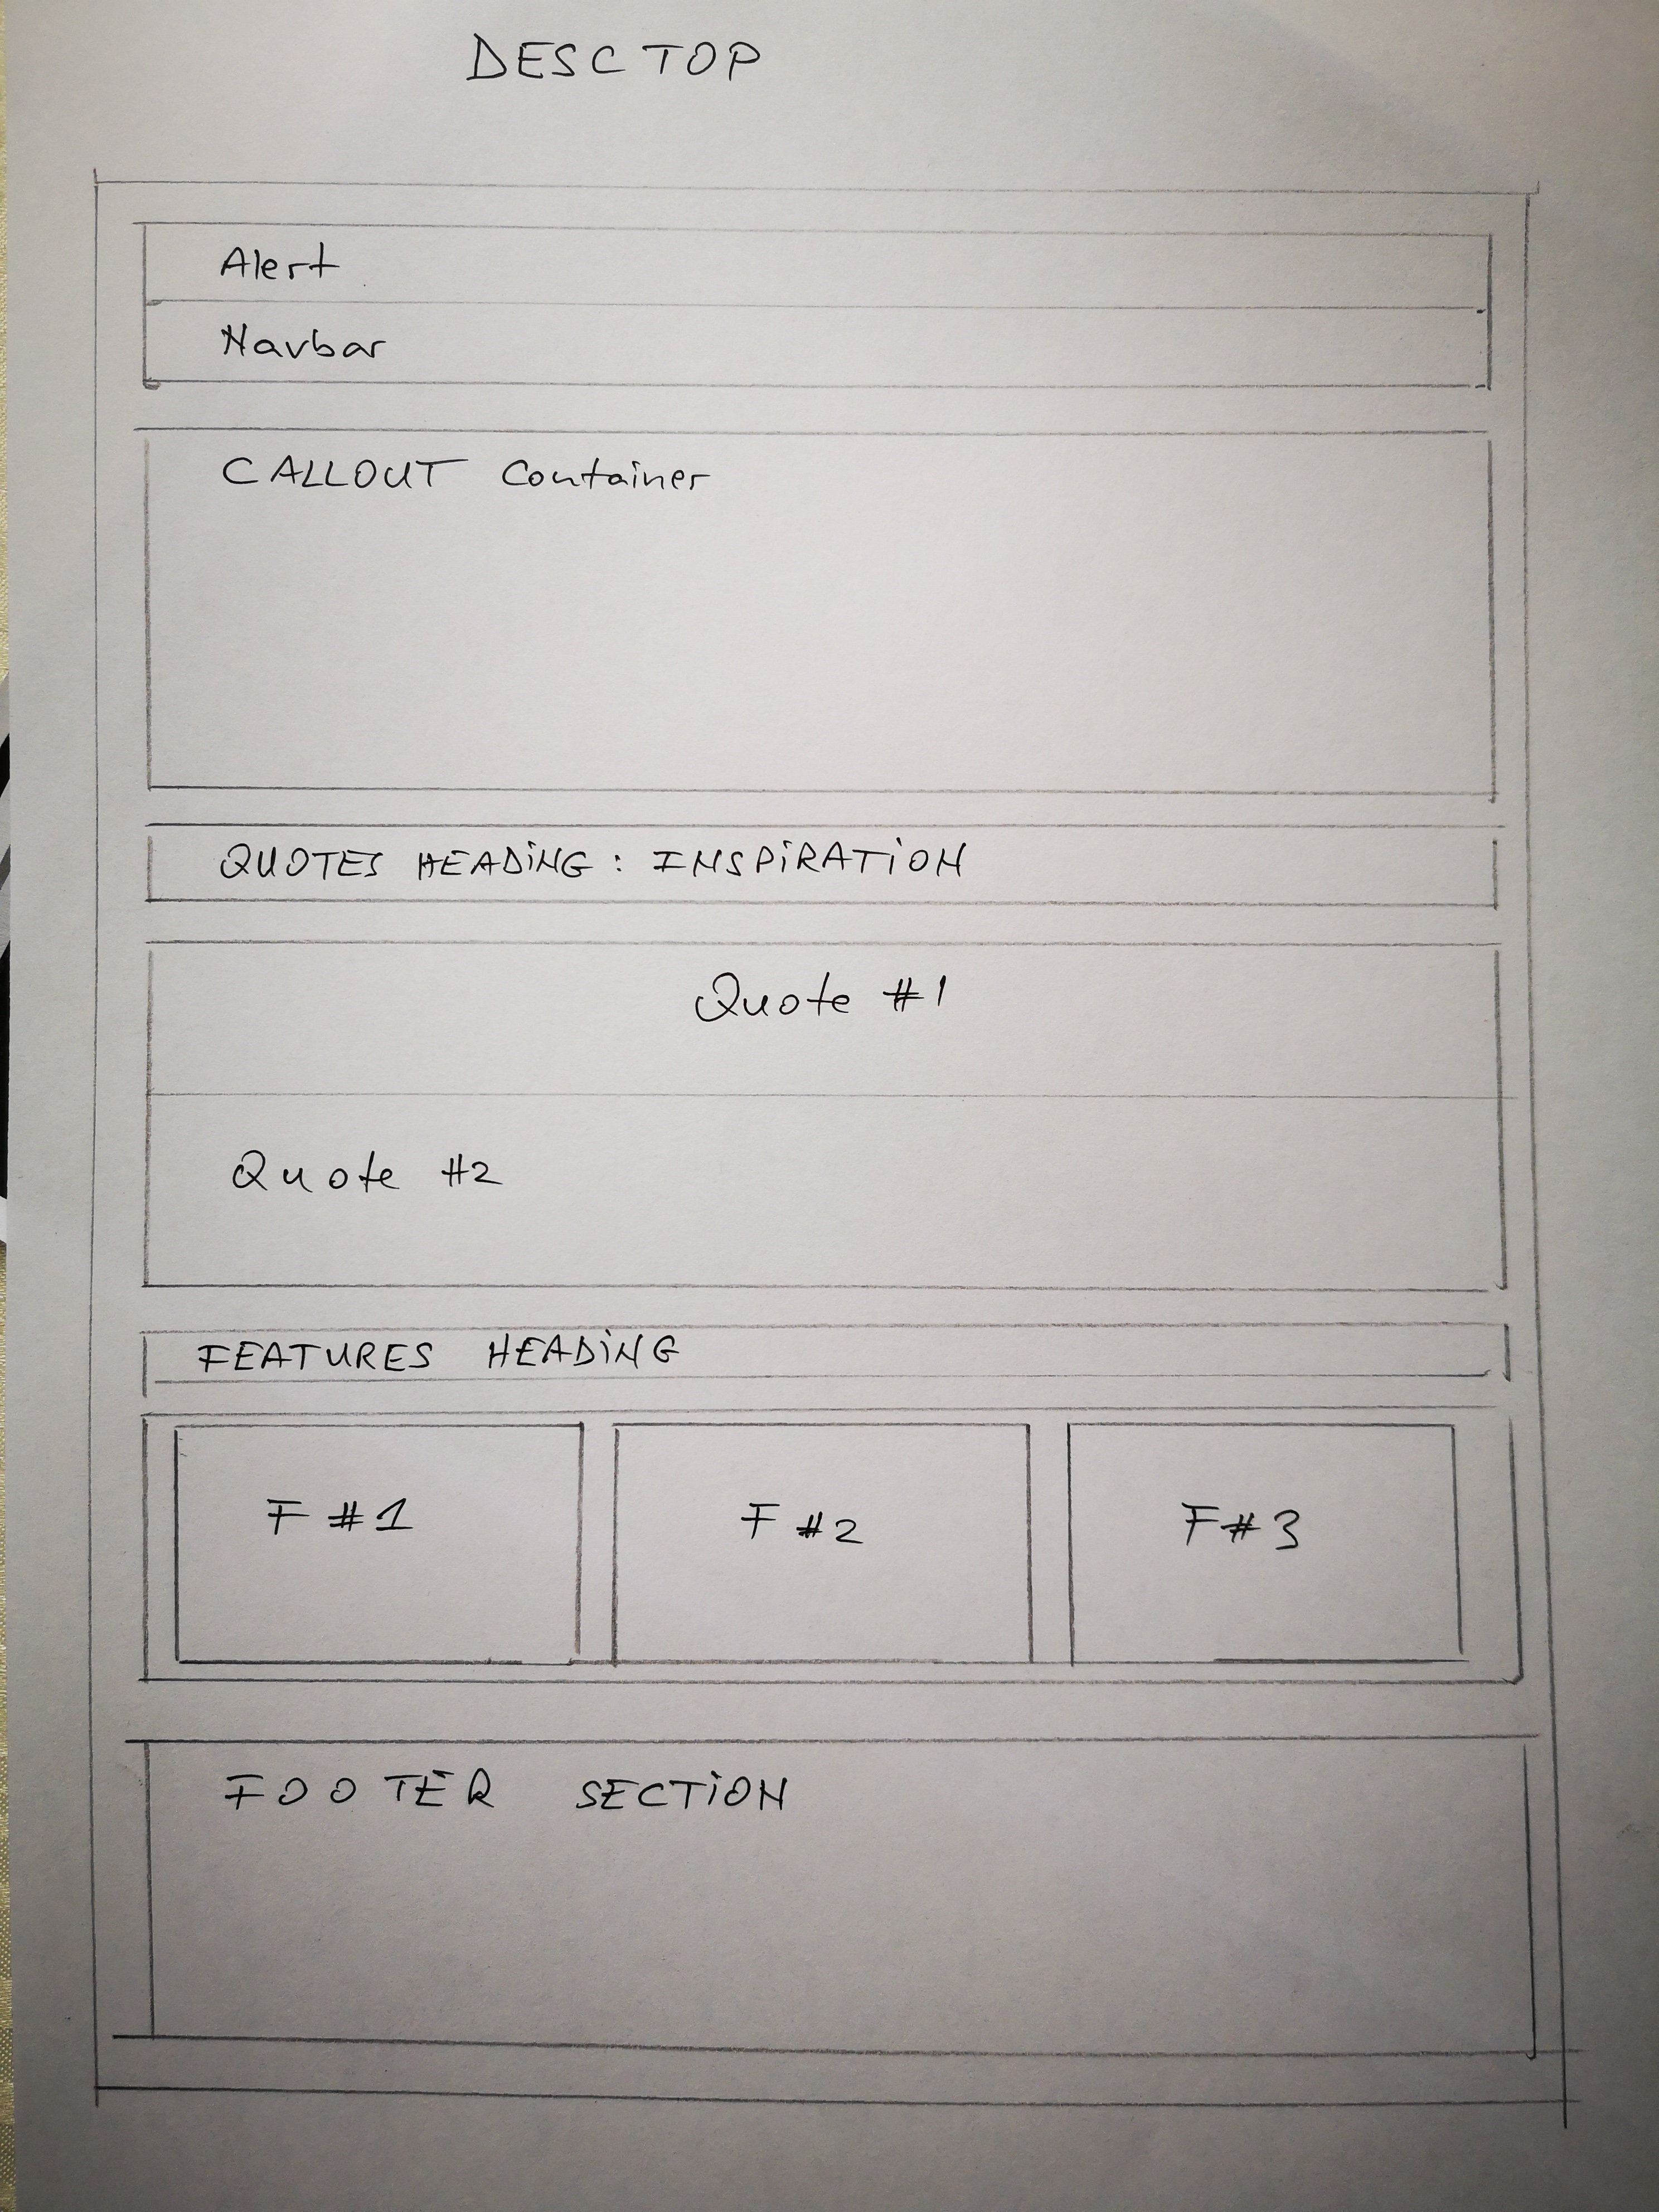 DESCTOP
Alert
Navbar
CALLOUT Container
QUOTES HEADING: INSPIRATION
Quote #1
Quote #2
FEATURES HEADING
F #1 F #2 F#3
FOOTER SECTION